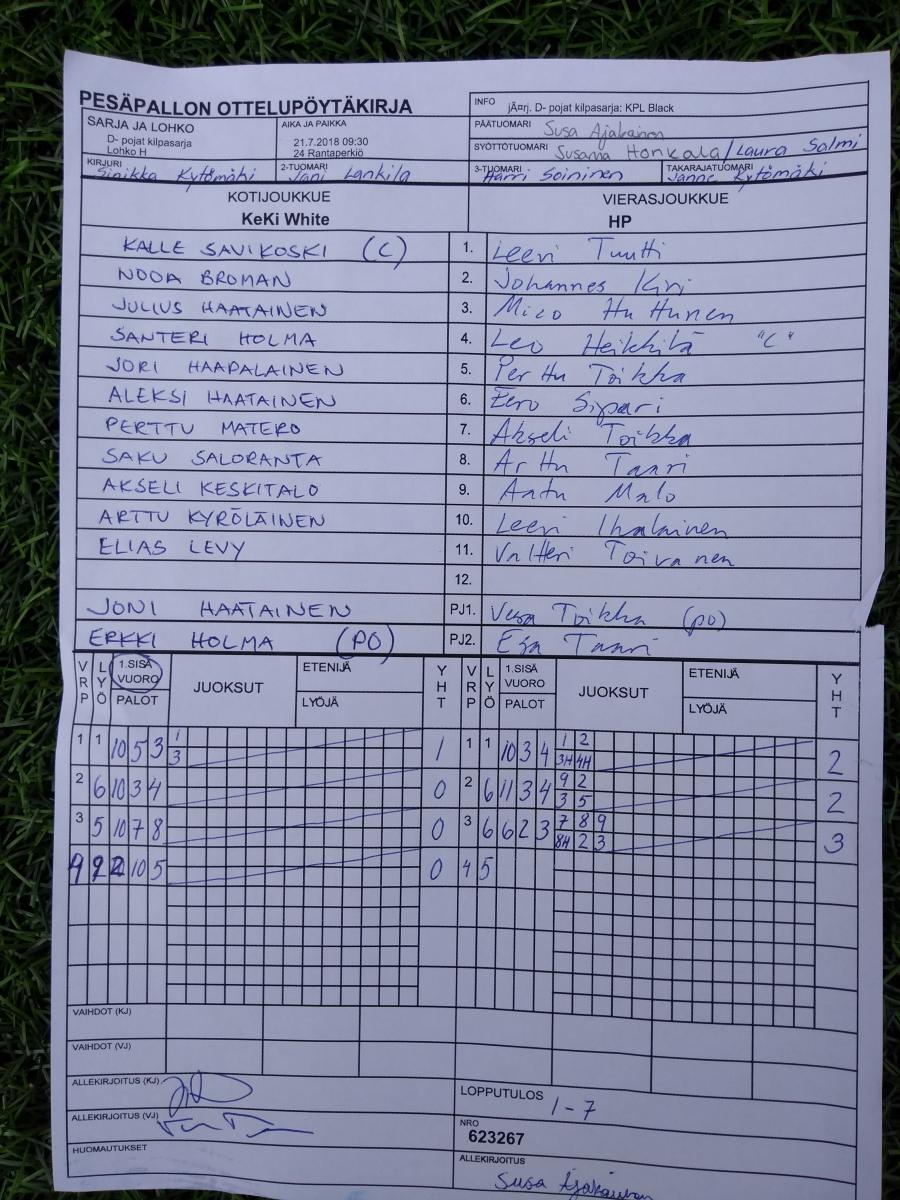 PESÄPALLON OTTELUPÖYTÄKIRJA
INFO järj. D- pojat kilpasarja: KPL Black
SARJA JA LOHKO
D- pojat kilpasarja
Lohko H
AIKA JA PAIKKA
21.7.2018 09:30
24 Rantaperkiö
PÄÄTUOMARI Susa Ajakainen
SYÖTTÖTUOMARI Susanna Honkala/Laura Salmi
KIRJURI Sinikka Kytömäki
2-TUOMARI Jani Lankila
3-TUOMARI Harri Soininen
TAKARAJATUOMARI Janne Kytömäki
KOTIJOUKKUE
KeKi White
VIERASJOUKKUE
HP
KALLE SAVIKOSKI (C) 1. Leevi Tuutti
NOOA BROMAN 2. Johannes Kiri
JULIUS HAATAINEN 3. Mico Huttunen
SANTERI HOLMA 4. Leo Heikkilä "C"
JORI HAAPALAINEN 5. Perttu Toikka
ALEKSI HAATAINEN 6. Eero Sipari
PERTTU MATERO 7. Akseli Toikka
SAKU SALORANTA 8. Arttu Taari
AKSELI KESKITALO 9. Anttu Malo
ARTTU KYRÖLÄINEN 10. Leevi Ihalainen
ELIAS LEVY 11. Valtteri Toivanen
12.
JONI HAATAINEN PJ1. Vesa Toikka (PO)
ERKKI HOLMA (PO) PJ2. Esa Taari
VRP LYÖ 1.SISÄ VUORO PALOT JUOKSUT ETENIJÄ LYÖJÄ YHT VRP LYÖ 1.SISÄ VUORO PALOT JUOKSUT ETENIJÄ LYÖJÄ YHT
1 1 10 5 3 1 1 1 1 10 3 4 1 2 2
3 3H 4H
2 6 10 3 4 0 2 6 11 3 4 9 2 2
3 5
3 5 10 7 8 0 3 6 6 2 3 7 8 9 3
8H 2 3
10 5 0 4 5
VAIHDOT (KJ)
VAIHDOT (VJ)
ALLEKIRJOITUS (KJ)
LOPPUTULOS 1-7
ALLEKIRJOITUS (VJ)
NRO
623267
HUOMAUTUKSET
ALLEKIRJOITUS
Susa Ajakainen